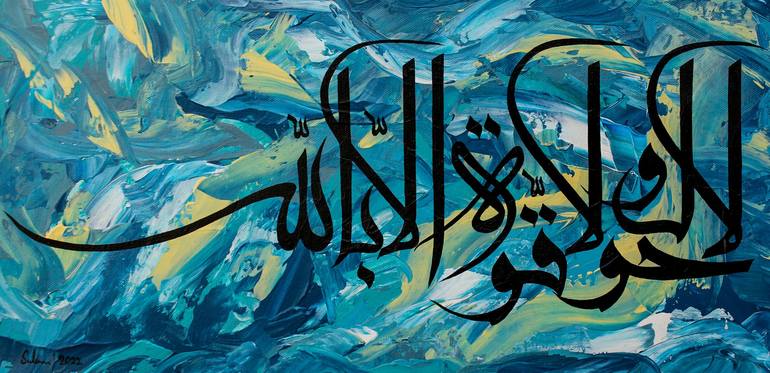 لا حول ولا قوة إلا بالله
2022